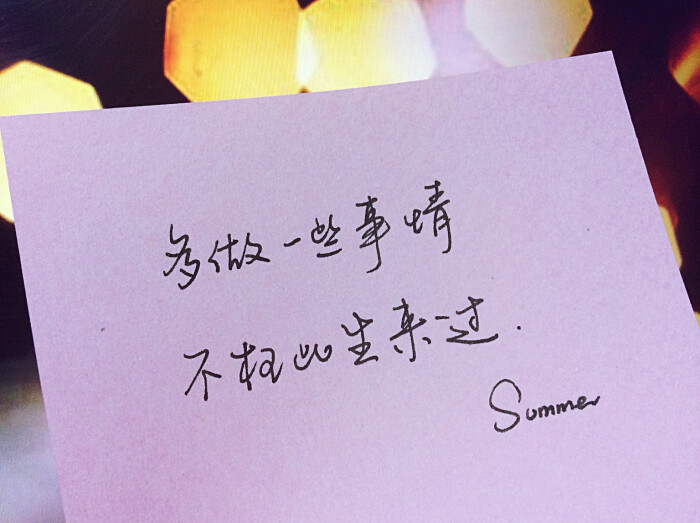 多做一些事情
不枉此生来过.
Summer